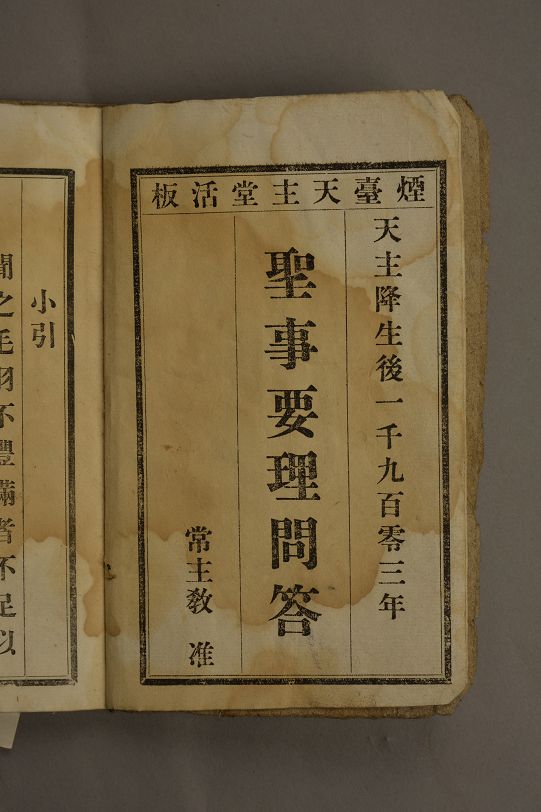 煙臺天主堂活板
天主降生後一千九百零三年
聖事要理問答
常主敎 准
小引
聞之毛羽不豐滿者不足以